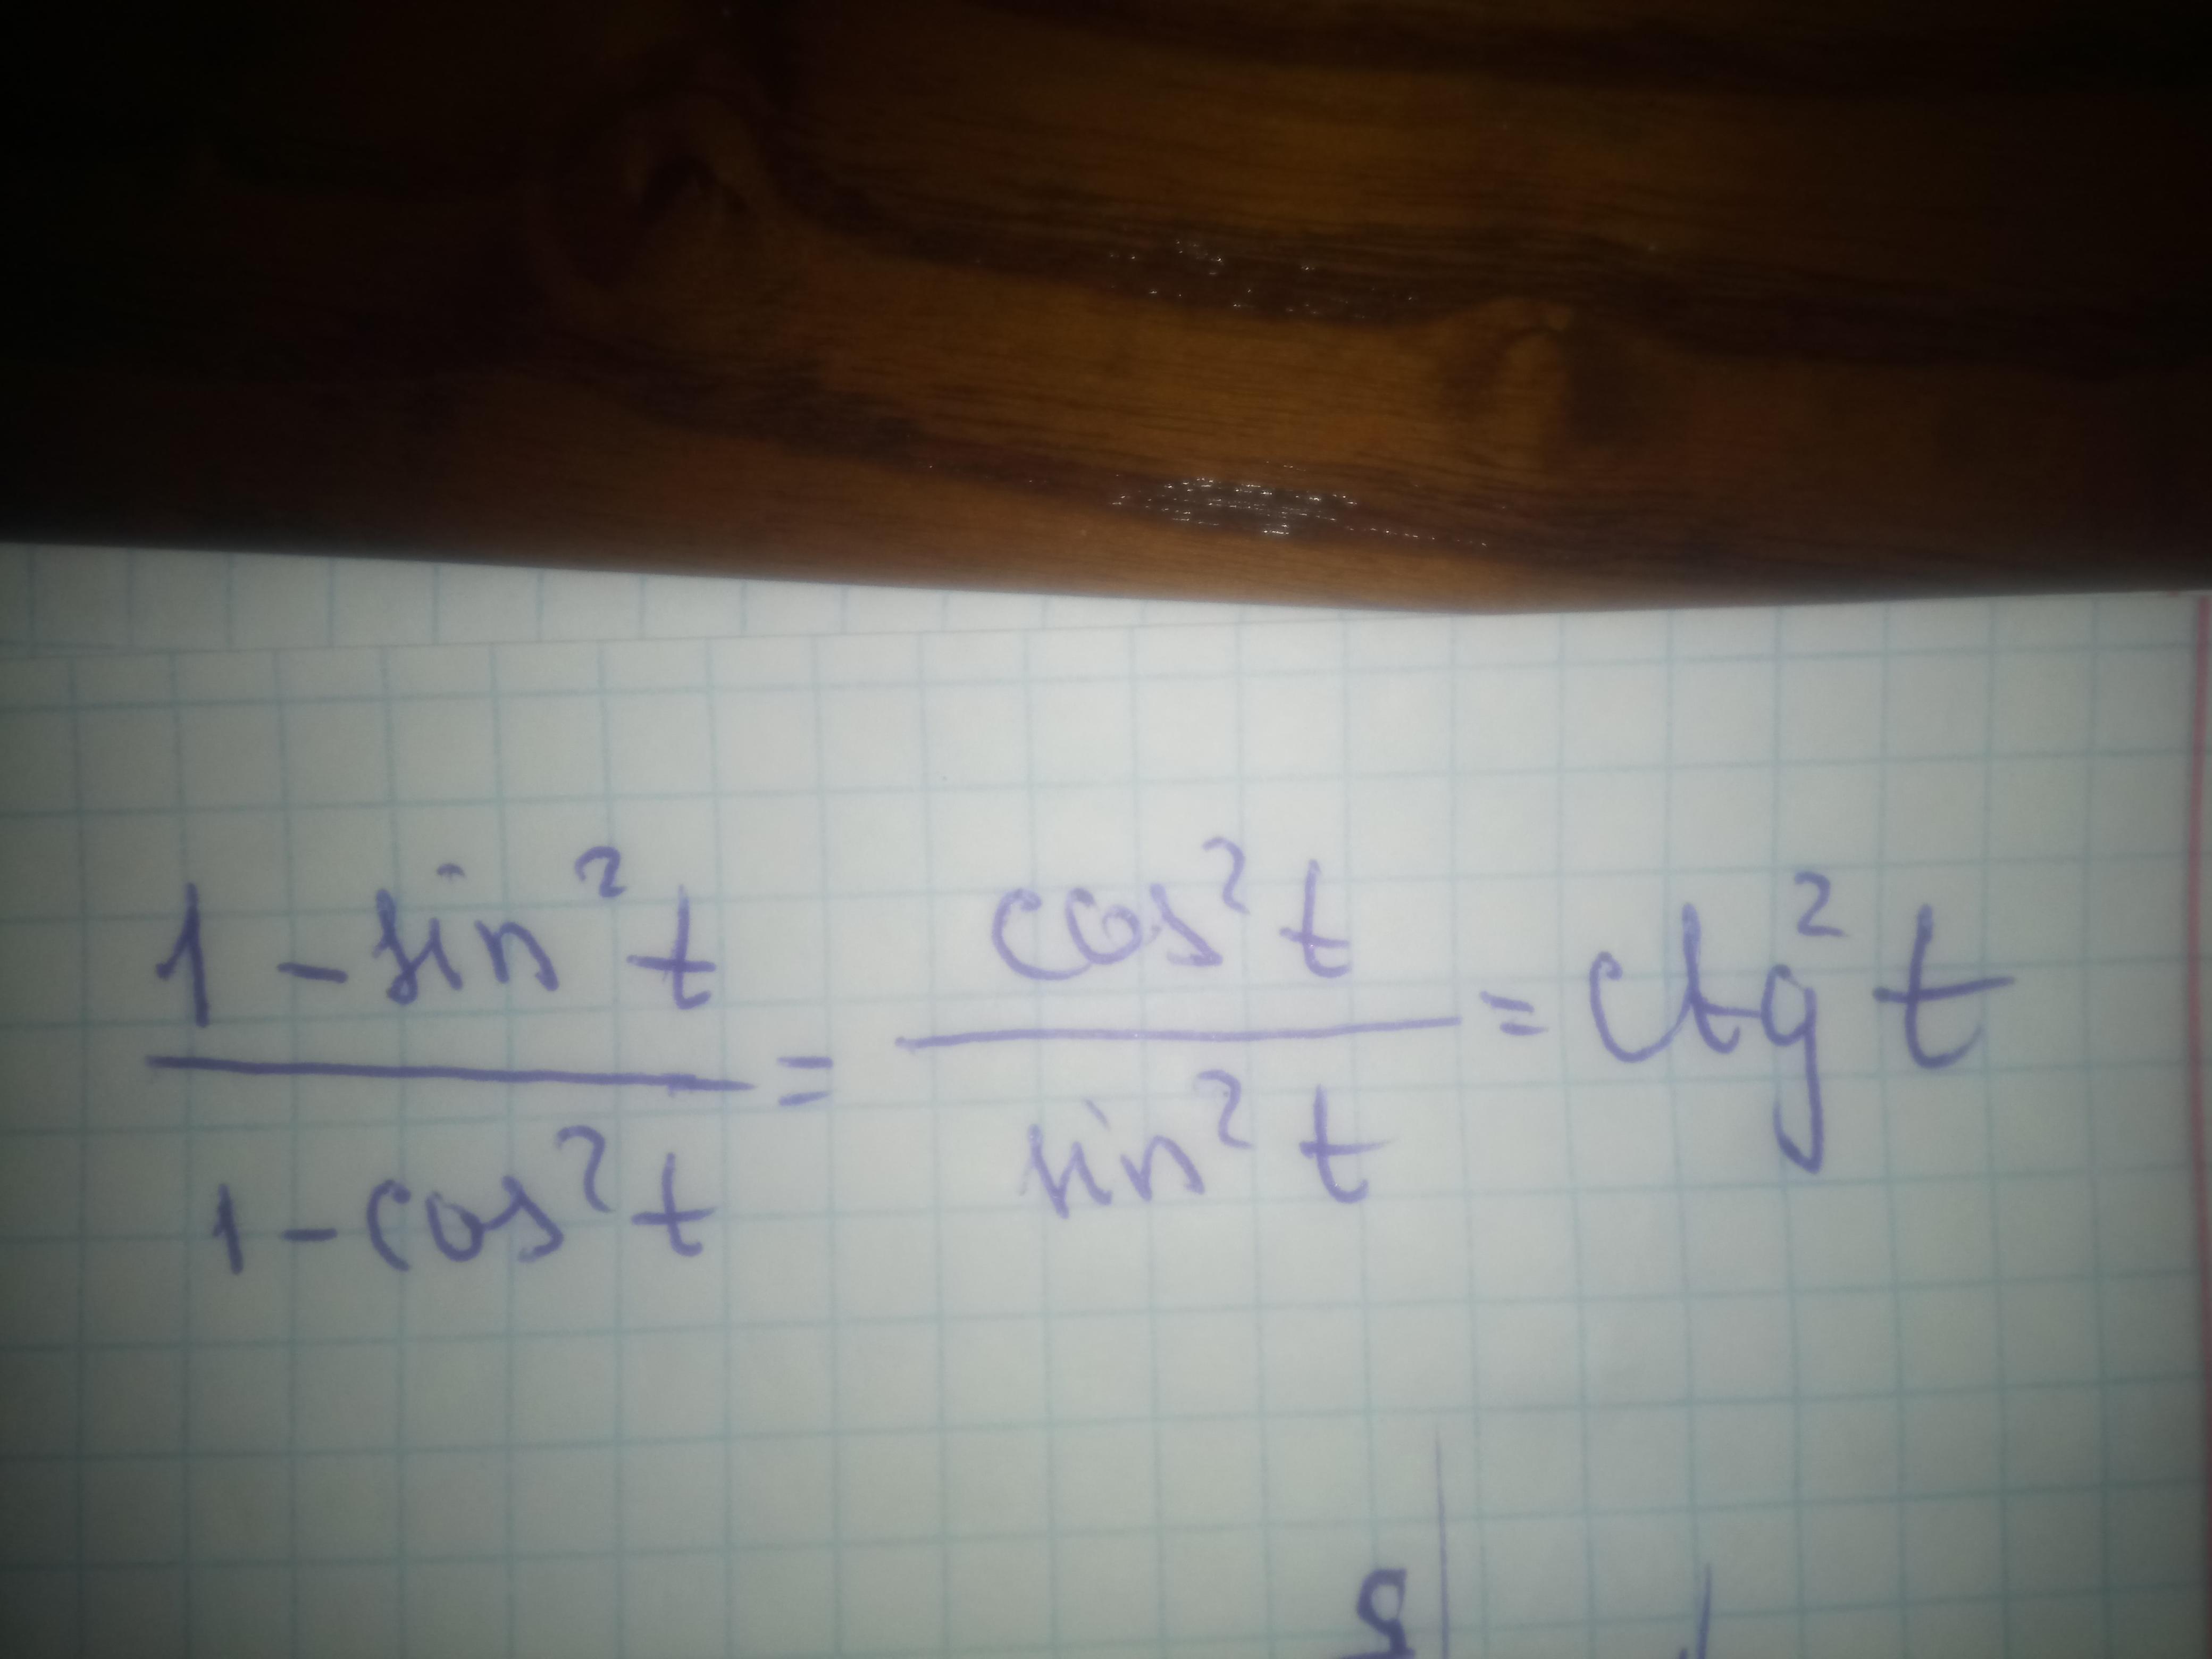 1 - sin² t / 1 - cos² t = cos² t / sin² t = ctg² t